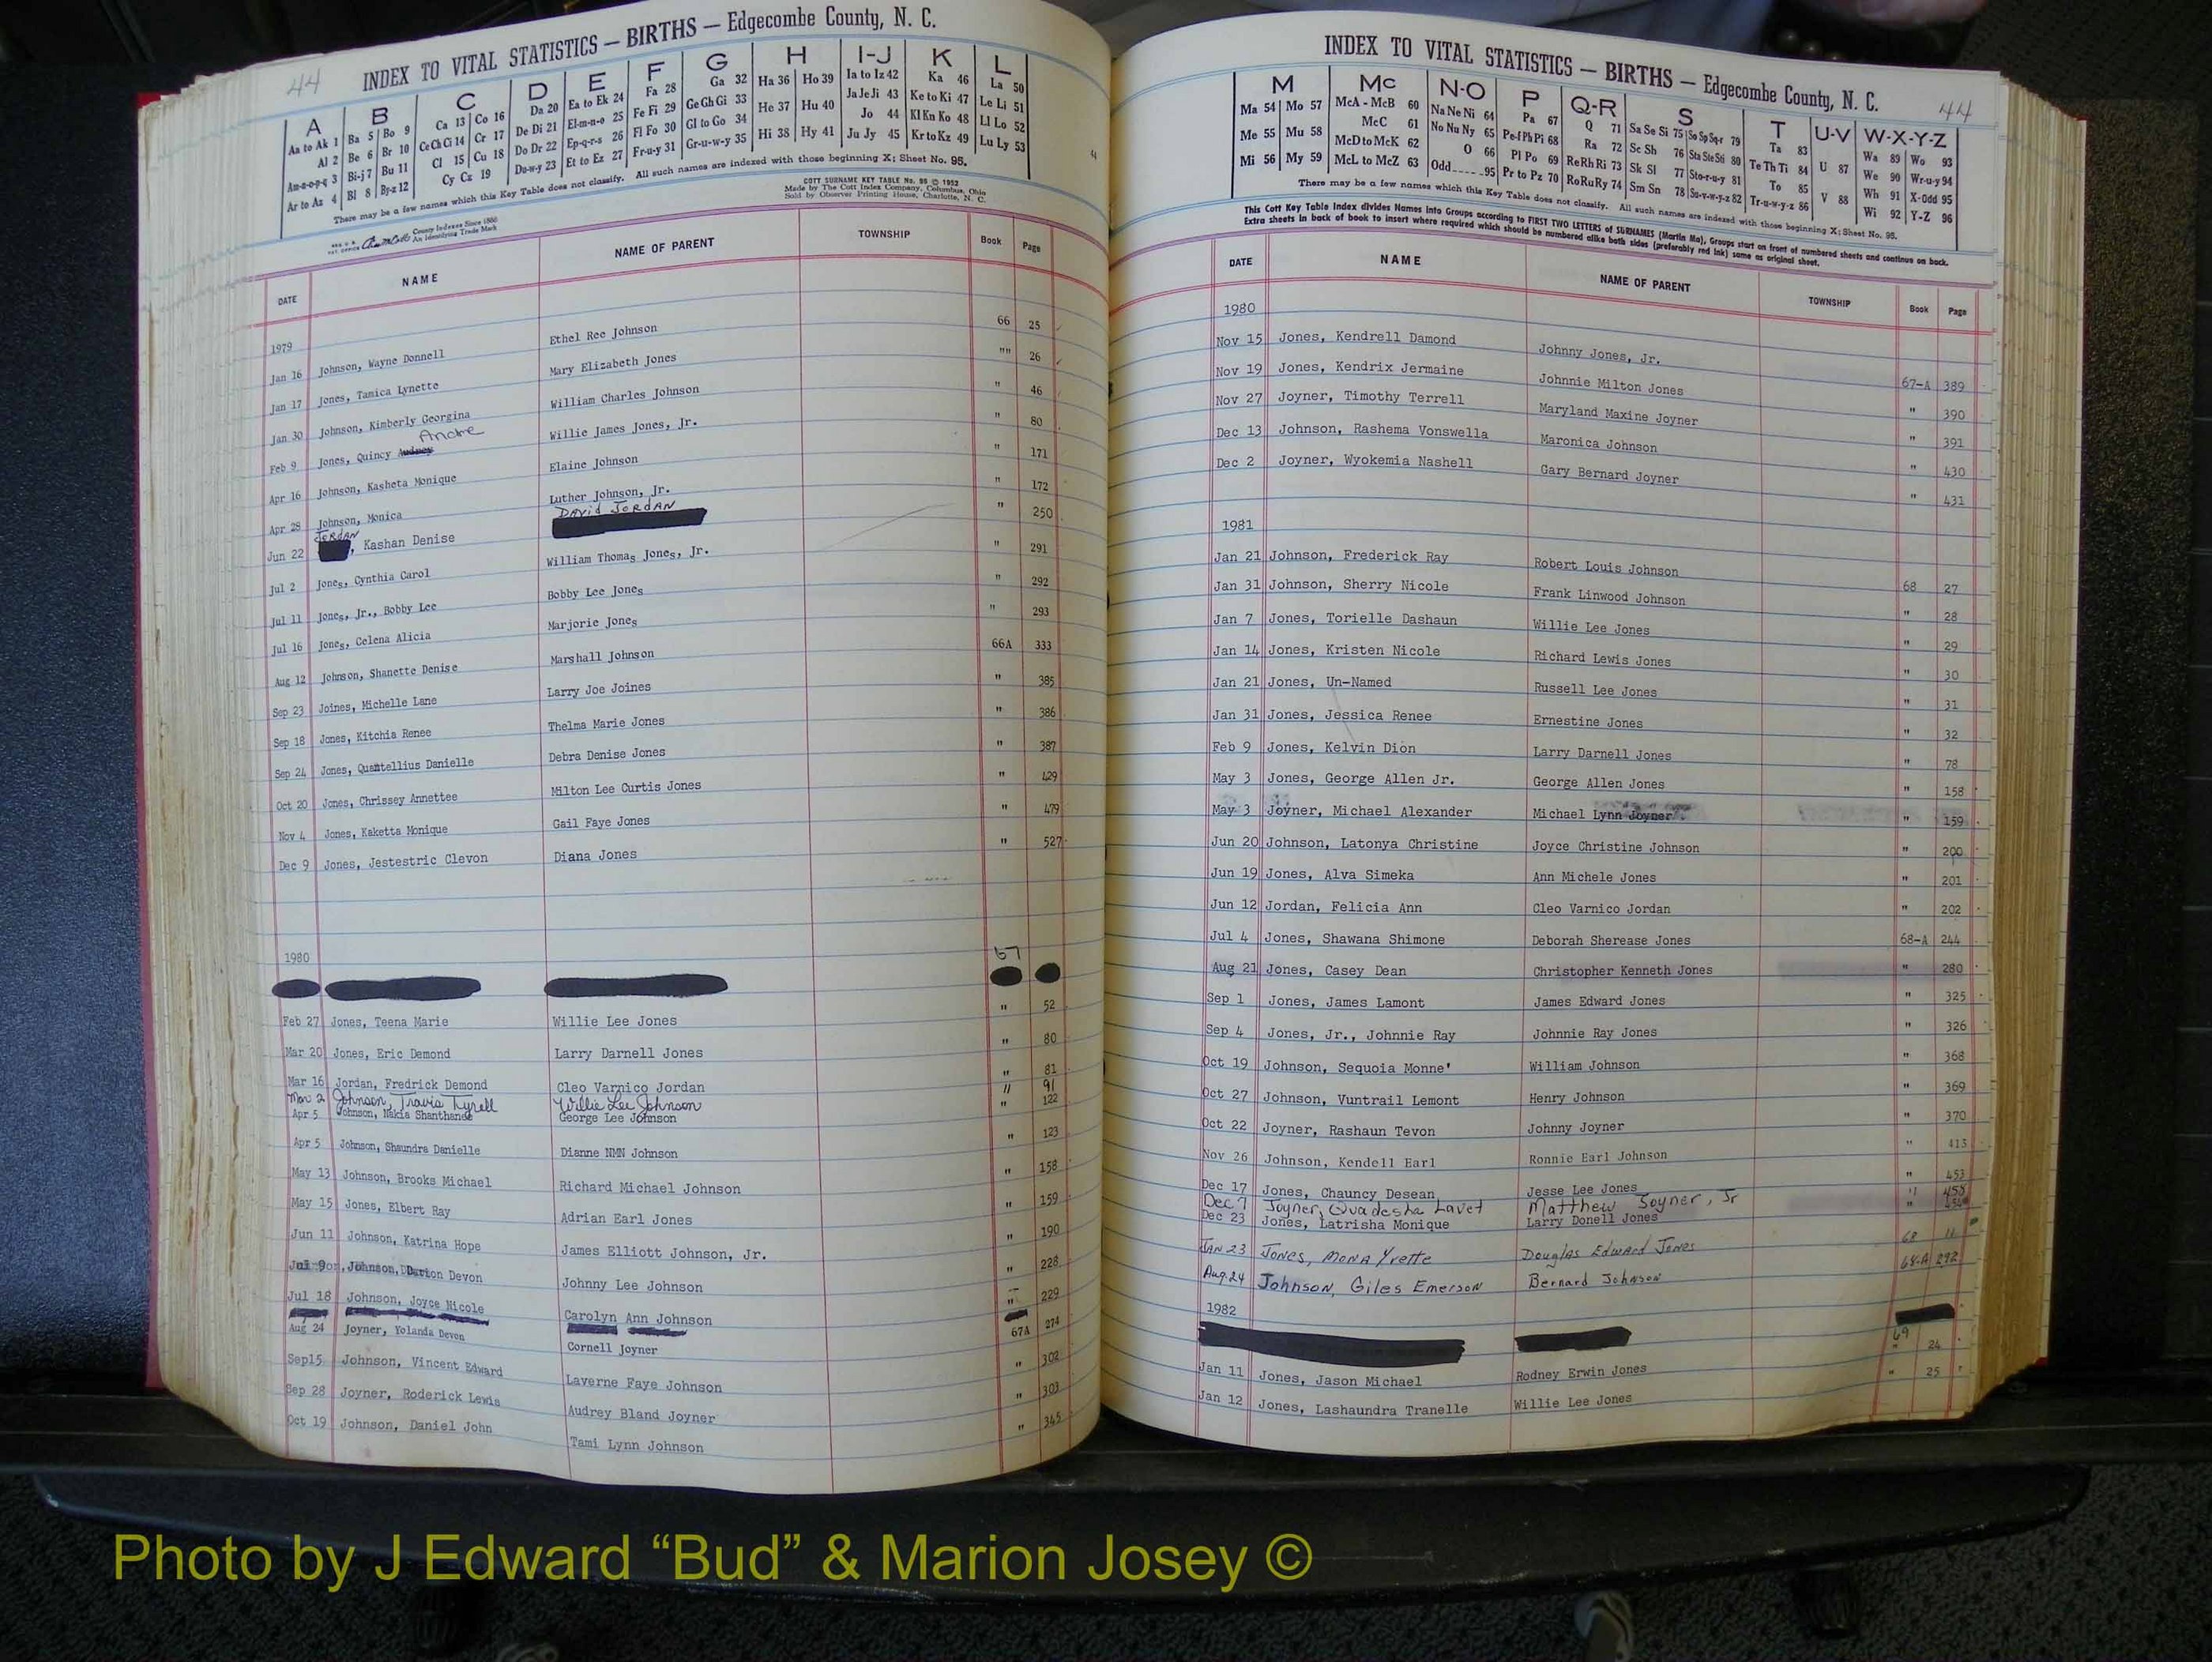 44
INDEX TO VITAL STATISTICS — BIRTHS — Edgecombe County, N. C.
A B C D E F G H I-J K L
Aa to Ak 1 Ba 5 Bo 9 Ca 13 Co 16 Da 20 Ea to Ek 24 Fa 28 Ga 32 Ha 36 Ho 39 Ia to Iz 42 Ka 46 La 50
Al 2 Be 6 Br 10 Ce Ch Ci 14 Cr 17 De Di 21 El-m-n-o 25 Fe Fi 29 Ge Gh Gi 33 He 37 Hu 40 Ja Je Ji 43 Ke to Ki 47 Le Li 51
Am-n-o-p-q 3 Bi-j 7 Bu 11 Cl 15 Cu 18 Do Dr 22 Ep-q-r-s 26 Fl Fo 30 Gl to Go 34 Hi 38 Hy 41 Jo 44 Kl Kn Ko 48 Ll Lo 52
Ar to Az 4 Bl 8 By-z 12 Cy Cz 19 Du-w-y 23 Et to Ez 27 Fr-u-y 31 Gr-u-w-y 35 Ju Jy 45 Kr to Kz 49 Lu Ly 53
There may be a few names which this Key Table does not classify. All such names are indexed with those beginning X; Sheet No. 95.
COTT SURNAME KEY TABLE No. 96 © 1952
Made by The Cott Index Company, Columbus, Ohio
Sold by Observer Printing House, Charlotte, N. C.
County Indexes Since 1888
An Identifying Trade Mark
DATE NAME NAME OF PARENT TOWNSHIP Book Page
1979
Jan 16 Johnson, Wayne Donnell Ethel Ree Johnson 66 25
Jan 17 Jones, Tamica Lynette Mary Elizabeth Jones "" 26
Jan 30 Johnson, Kimberly Georgina William Charles Johnson " 46
Andre
Feb 9 Jones, Quincy Willie James Jones, Jr. " 80
Apr 16 Johnson, Kasheta Monique Elaine Johnson " 171
Apr 28 Johnson, Monica Luther Johnson, Jr. " 172
JORDAN DAVID JORDAN
Jun 22 , Kashan Denise " 250
Jul 2 Jones, Cynthia Carol William Thomas Jones, Jr. " 291
Jul 11 Jones, Jr., Bobby Lee Bobby Lee Jones " 292
Jul 16 Jones, Celena Alicia Marjorie Jones " 293
Aug 12 Johnson, Shanette Denise Marshall Johnson 66A 333
Sep 23 Joines, Michelle Lane Larry Joe Joines " 385
Sep 18 Jones, Kitchia Renee Thelma Marie Jones " 386
Sep 24 Jones, Quantellius Danielle Debra Denise Jones " 387
Oct 20 Jones, Chrissey Annettee Milton Lee Curtis Jones " 429
Nov 4 Jones, Kaketta Monique Gail Faye Jones " 479
Dec 9 Jones, Jestestric Clevon Diana Jones " 527
1980
67
Feb 27 Jones, Teena Marie Willie Lee Jones " 52
Mar 20 Jones, Eric Demond Larry Darnell Jones " 80
Mar 16 Jordan, Fredrick Demond Cleo Varnico Jordan " 81
Mar 2 Johnson, Travis Tyrell Willie Lee Johnson " 91
Apr 5 Johnson, Nakia Shanthanee George Lee Johnson " 122
Apr 5 Johnson, Shaundra Danielle Dianne NMN Johnson " 123
May 13 Johnson, Brooks Michael Richard Michael Johnson " 158
May 15 Jones, Elbert Ray Adrian Earl Jones " 159
Jun 11 Johnson, Katrina Hope James Elliott Johnson, Jr. " 190
Jul 9 Johnson, Darion Devon Johnny Lee Johnson " 228
Jul 18 Johnson, Joyce Nicole Carolyn Ann Johnson " 229
Aug 24 Joyner, Yolanda Devon Cornell Joyner 67A 274
Sep15 Johnson, Vincent Edward Laverne Faye Johnson " 302
Sep 28 Joyner, Roderick Lewis Audrey Bland Joyner " 303
Oct 19 Johnson, Daniel John Tami Lynn Johnson " 345
INDEX TO VITAL STATISTICS — BIRTHS — Edgecombe County, N. C.
44
M Mc N-O P Q-R S T U-V W-X-Y-Z
Ma 54 Mo 57 McA - McB 60 Na Ne Ni 64 Pa 67 Q 71 Sa Se Si 75 So Sp Sq-r 79 Ta 83 U 87 Wa 89 Wo 93
Me 55 Mu 58 McC 61 No Nu Ny 65 Pe-f Ph Pi 68 Ra 72 Sc Sh 76 Sta Ste Sti 80 Te Th Ti 84 V 88 We 90 Wr-u-y 94
Mi 56 My 59 McD to McK 62 O 66 Pl Po 69 Re Rh Ri 73 Sk Sl 77 Sto-r-u-y 81 To 85 Wh 91 X-Odd 95
McL to McZ 63 Odd 95 Pr to Pz 70 Ro Ru Ry 74 Sm Sn 78 Su-v-w-y-z 82 Tr-u-w-y-z 86 Wi 92 Y-Z 96
There may be a few names which this Key Table does not classify. All such names are indexed with those beginning X; Sheet No. 95.
This Cott Key Table Index divides Names into Groups according to FIRST TWO LETTERS of SURNAMES (Martin Ma), Groups start on front of numbered sheets and continue on back.
Extra sheets in back of book to insert where required which should be numbered alike both sides (preferably red ink) same as original sheet.
DATE NAME NAME OF PARENT TOWNSHIP Book Page
1980
Nov 15 Jones, Kendrell Damond Johnny Jones, Jr. 67-A 389
Nov 19 Jones, Kendrix Jermaine Johnnie Milton Jones " 390
Nov 27 Joyner, Timothy Terrell Maryland Maxine Joyner " 391
Dec 13 Johnson, Rashema Vonswella Maronica Johnson " 430
Dec 2 Joyner, Wyokemia Nashell Gary Bernard Joyner " 431
1981
Jan 21 Johnson, Frederick Ray Robert Louis Johnson 68 27
Jan 31 Johnson, Sherry Nicole Frank Linwood Johnson " 28
Jan 7 Jones, Torielle Dashaun Willie Lee Jones " 29
Jan 14 Jones, Kristen Nicole Richard Lewis Jones " 30
Jan 21 Jones, Un-Named Russell Lee Jones " 31
Jan 31 Jones, Jessica Renee Ernestine Jones " 32
Feb 9 Jones, Kelvin Dion Larry Darnell Jones " 78
May 3 Jones, George Allen Jr. George Allen Jones " 158
May 3 Joyner, Michael Alexander Michael Lynn Joyner " 159
Jun 20 Johnson, Latonya Christine Joyce Christine Johnson " 200
Jun 19 Jones, Alva Simeka Ann Michele Jones " 201
Jun 12 Jordan, Felicia Ann Cleo Varnico Jordan " 202
Jul 4 Jones, Shawana Shimone Deborah Sherease Jones 68-A 244
Aug 21 Jones, Casey Dean Christopher Kenneth Jones " 280
Sep 1 Jones, James Lamont James Edward Jones " 325
Sep 4 Jones, Jr., Johnnie Ray Johnnie Ray Jones " 326
Oct 19 Johnson, Sequoia Monne' William Johnson " 368
Oct 27 Johnson, Vuntrail Lemont Henry Johnson " 369
Oct 22 Joyner, Rashaun Tevon Johnny Joyner " 370
Nov 26 Johnson, Kendell Earl Ronnie Earl Johnson " 413
Dec 17 Jones, Chauncy Desean Jesse Lee Jones " 453
Dec 7 Joyner, Quadesha Lavet Matthew Joyner, Jr " 458
Dec 23 Jones, Latrisha Monique Larry Donell Jones "
JAN 23 JONES, MONA Yvette Douglas Edward Jones 68 11
Aug. 24 Johnson, Giles Emerson Bernard Johnson 68-A 292
1982
69
" 24
Jan 11 Jones, Jason Michael Rodney Erwin Jones " 25
Jan 12 Jones, Lashaundra Tranelle Willie Lee Jones
Photo by J Edward “Bud” & Marion Josey ©